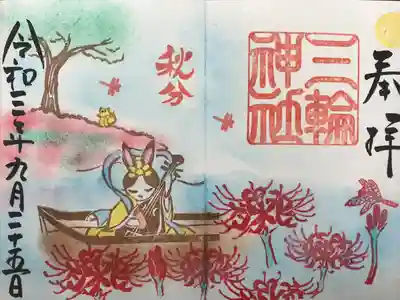 奉拝
三輪
神社
秋分
令和三年九月二十五日